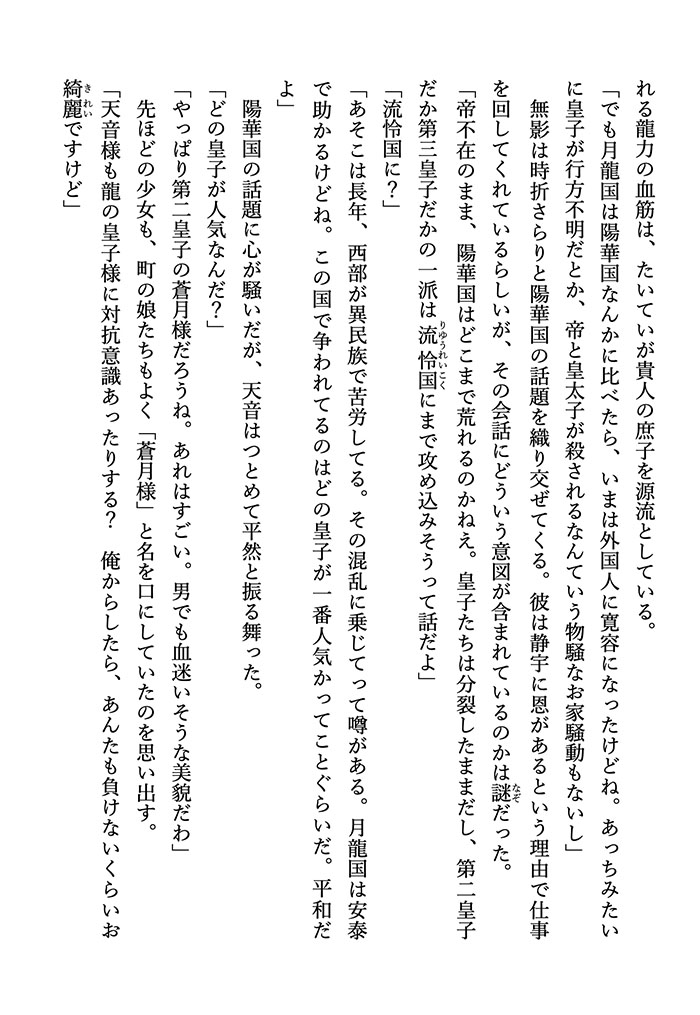 れる龍力の血筋は、たいていが貴人の庶子を源流としている。
「でも月龍国は陽華国なんかに比べたら、いまは外国人に寛容になったけどね。あっちみたい
に皇子が行方不明だとか、帝と皇太子が殺されるなんていう物騒なお家騒動もないし」
　無影は時折さらりと陽華国の話題を織り交ぜてくる。彼は静宇に恩があるという理由で仕事
を回してくれているらしいが、その会話にどういう意図が含まれているのかは謎なぞだった。
「帝不在のまま、陽華国はどこまで荒れるのかねえ。皇子たちは分裂したままだし、第二皇子
だか第三皇子だかの一派は流怜国りゆうれいこくにまで攻め込みそうって話だよ」
「流怜国に？」
「あそこは長年、西部が異民族で苦労してる。その混乱に乗じてって噂がある。月龍国は安泰
で助かるけどね。この国で争われてるのはどの皇子が一番人気かってことぐらいだ。平和だ
よ」
　陽華国の話題に心が騒いだが、天音はつとめて平然と振る舞った。
「どの皇子が人気なんだ？」
「やっぱり第二皇子の蒼月様だろうね。あれはすごい。男でも血迷いそうな美貌だわ」
　先ほどの少女も、町の娘たちもよく「蒼月様」と名を口にしていたのを思い出す。
「天音様も龍の皇子様に対抗意識あったりする？　俺からしたら、あんたも負けないくらいお
綺麗きれいですけど」